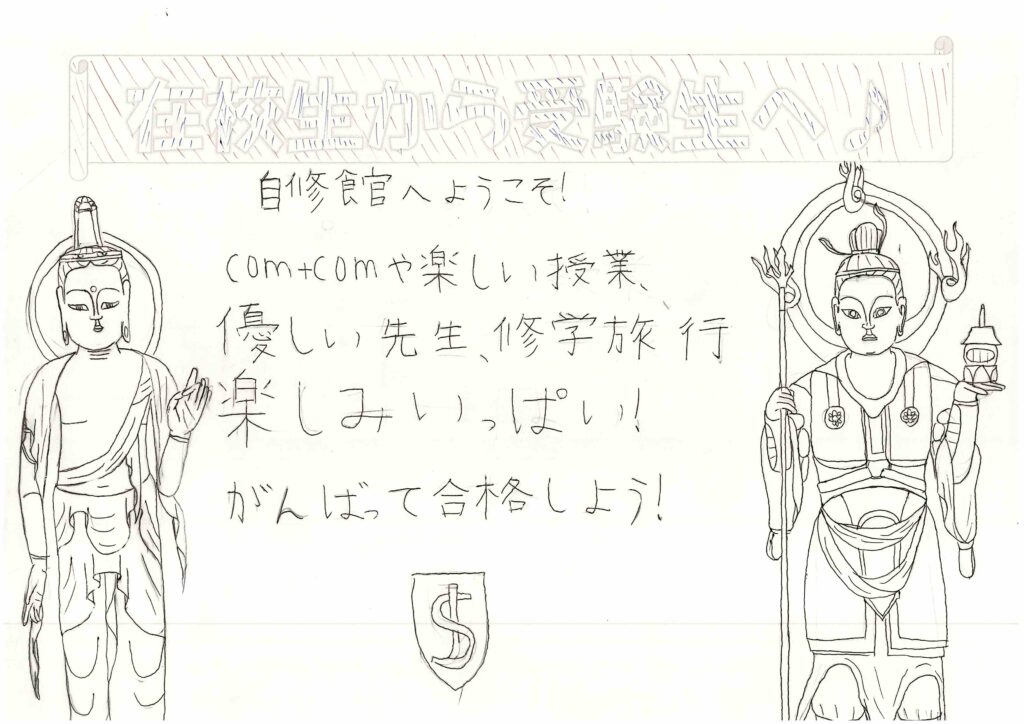 在校生から受験生へ♪
自修館へようこそ!
com+comや楽しい授業、
優しい先生、修学旅行
楽しみいっぱい!
がんばって合格しよう!